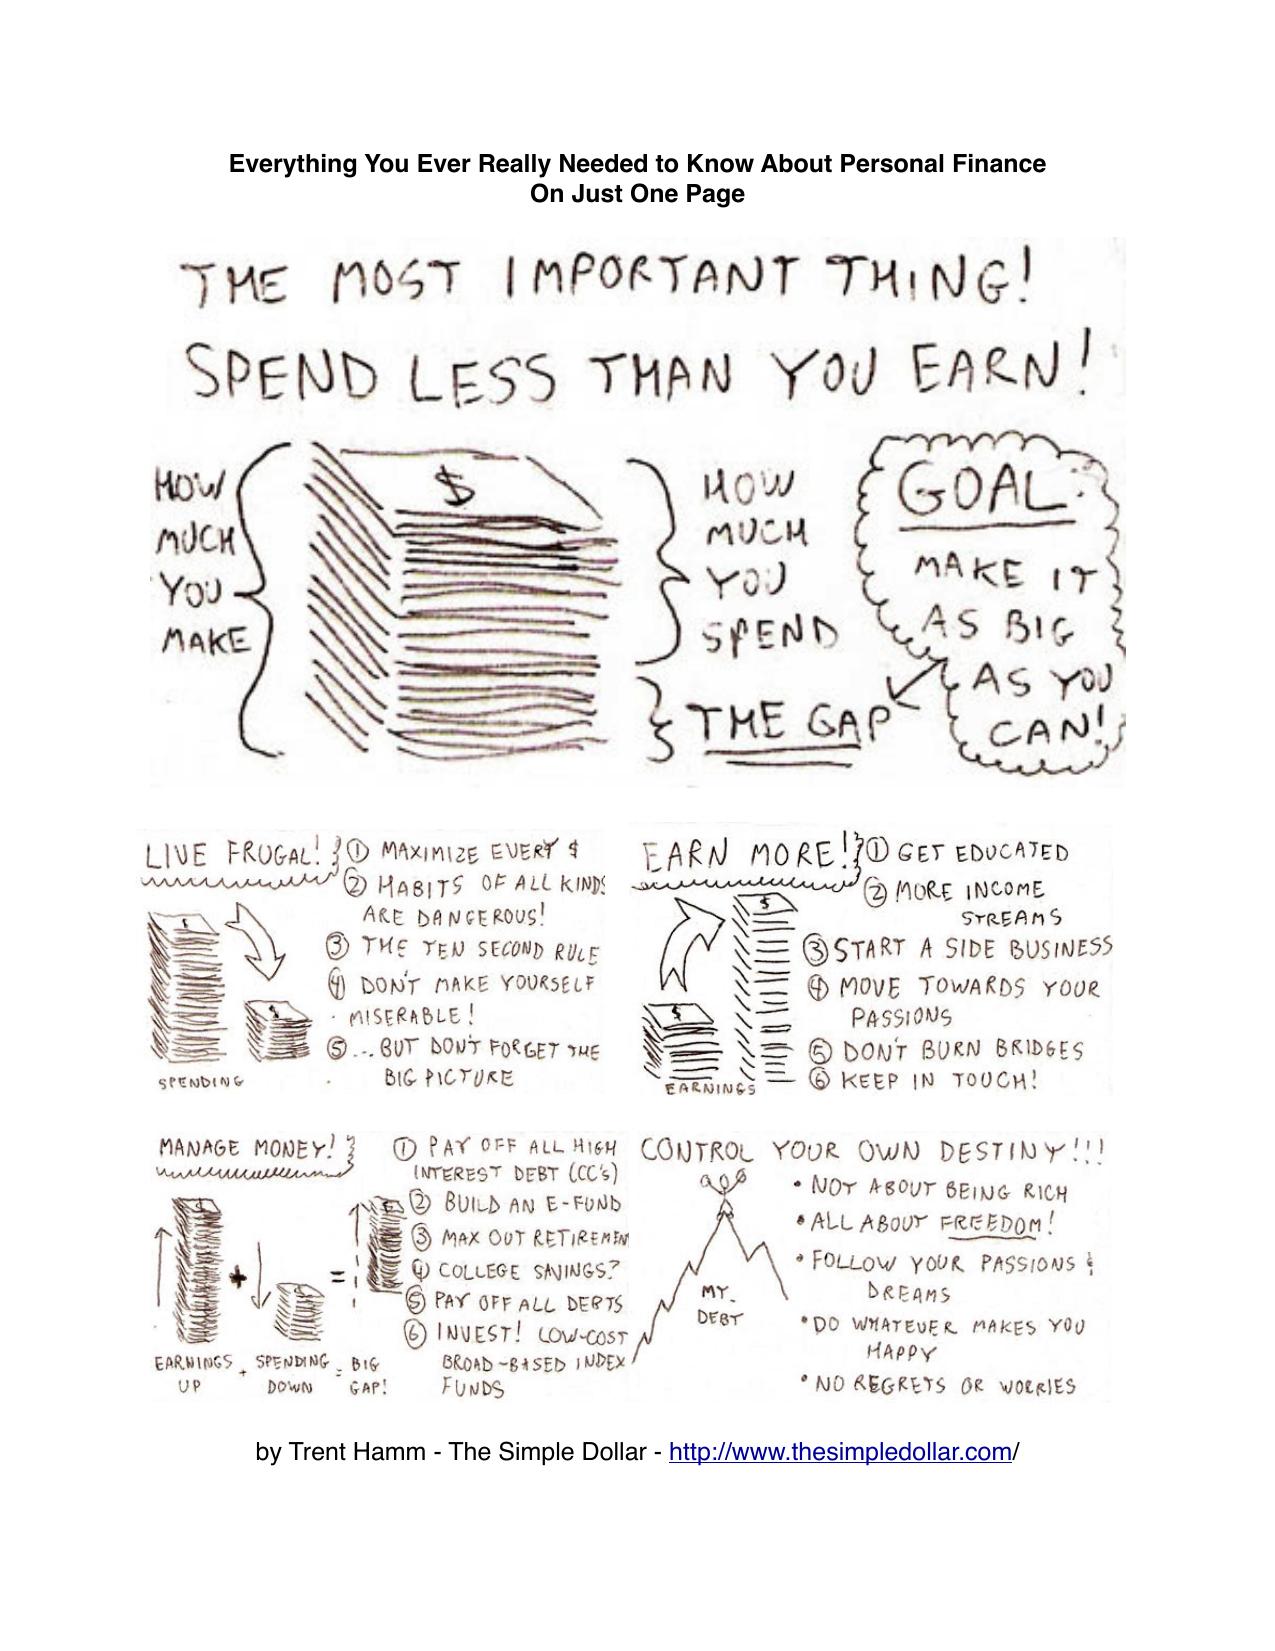 Everything You Ever Really Needed to Know About Personal Finance
On Just One Page
THE MOST IMPORTANT THING!
SPEND LESS THAN YOU EARN!
HOW
MUCH
YOU
MAKE
$
HOW
MUCH
YOU
SPEND
THE GAP
GOAL:
MAKE IT
AS BIG
AS YOU
CAN!
LIVE FRUGAL!
① MAXIMIZE EVERY $
② HABITS OF ALL KINDS
ARE DANGEROUS!
③ THE TEN SECOND RULE
④ DON'T MAKE YOURSELF
MISERABLE!
⑤ ... BUT DON'T FORGET THE
BIG PICTURE
$
$
SPENDING
EARN MORE!
① GET EDUCATED
② MORE INCOME
STREAMS
③ START A SIDE BUSINESS
④ MOVE TOWARDS YOUR
PASSIONS
⑤ DON'T BURN BRIDGES
⑥ KEEP IN TOUCH!
$
$
EARNINGS
MANAGE MONEY!
① PAY OFF ALL HIGH
INTEREST DEBT (CC's)
② BUILD AN E-FUND
③ MAX OUT RETIREMEN
④ COLLEGE SAVINGS?
⑤ PAY OFF ALL DEBTS
⑥ INVEST! LOW-COST
BROAD-BASED INDEX
FUNDS
+ =
EARNINGS + SPENDING = BIG
UP DOWN GAP!
CONTROL YOUR OWN DESTINY!!!
• NOT ABOUT BEING RICH
• ALL ABOUT FREEDOM!
• FOLLOW YOUR PASSIONS &
DREAMS
• DO WHATEVER MAKES YOU
HAPPY
• NO REGRETS OR WORRIES
MY
DEBT
by Trent Hamm - The Simple Dollar - http://www.thesimpledollar.com/